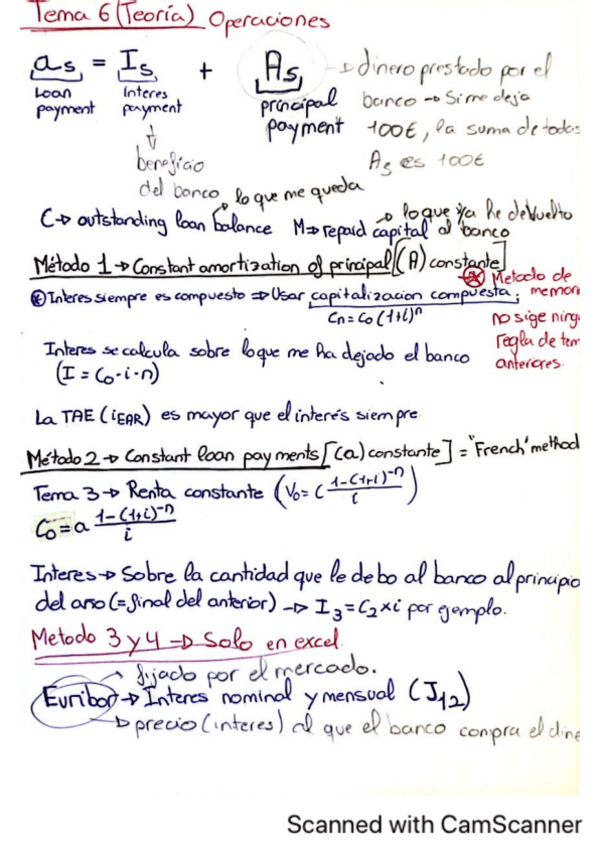 Tema 6 (Teoría) Operaciones
as = Is + As → dinero prestado por el
Loan payment Interes payment principal payment banco → Si me deja
100€, la suma de todos
As es 100€
beneficio
del banco lo que me queda
C → outstanding loan balance M → repaid capital → lo que ya he devuelto al banco
Método 1 → Constant amortization of principal [(A) constante]
* Metodo de memori
no sige ning
regla de tem
anteriores
* Interes siempre es compuesto ⇒ Usar capitalizacion compuesta:
Cn = Co (1+i)^n
Interes se calcula sobre lo que me ha dejado el banco
(I = Co · i · n)
La TAE (iEAR) es mayor que el interés siempre.
Método 2 → Constant loan payments [(a) constante] = "French" method
Tema 3 → Renta constante (Vo = C 1-(1+i)^-n / i)
Co = a 1-(1+i)^-n / i
Interes → Sobre la cantidad que le debo al banco al principio
del año (= final del anterior) → I3 = C2 × i por ejemplo.
Metodo 3 y 4 → Solo en excel.
→ fijado por el mercado.
Euribor → Interes nominal y mensual (J12)
→ precio (interes) al que el banco compra el dine
Scanned with CamScanner